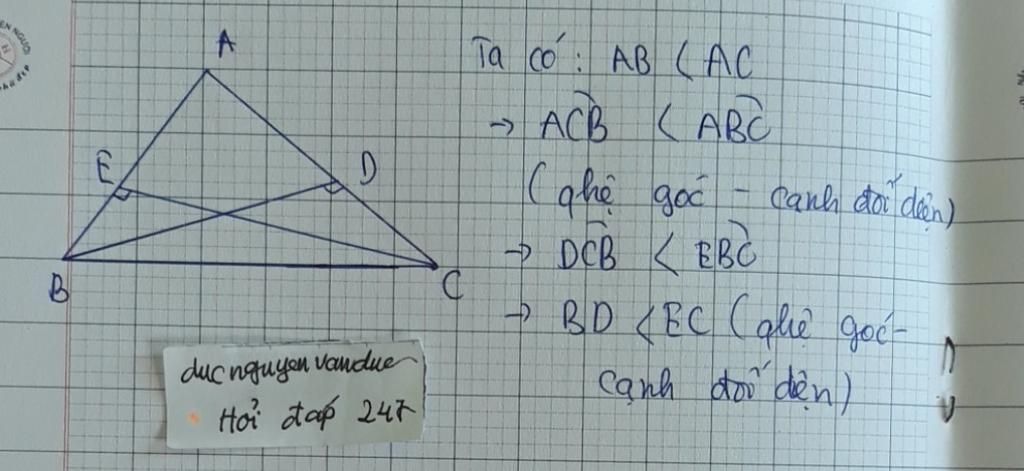 A
Ta có : AB < AC
→ ACB < ABC
E
D
(qhệ góc - cạnh đối diện)
→ DCB < EBC
B
C
→ BD < EC (qhệ góc-
cạnh đối diện)
ducnguyenvandue
Hỏi đáp 247